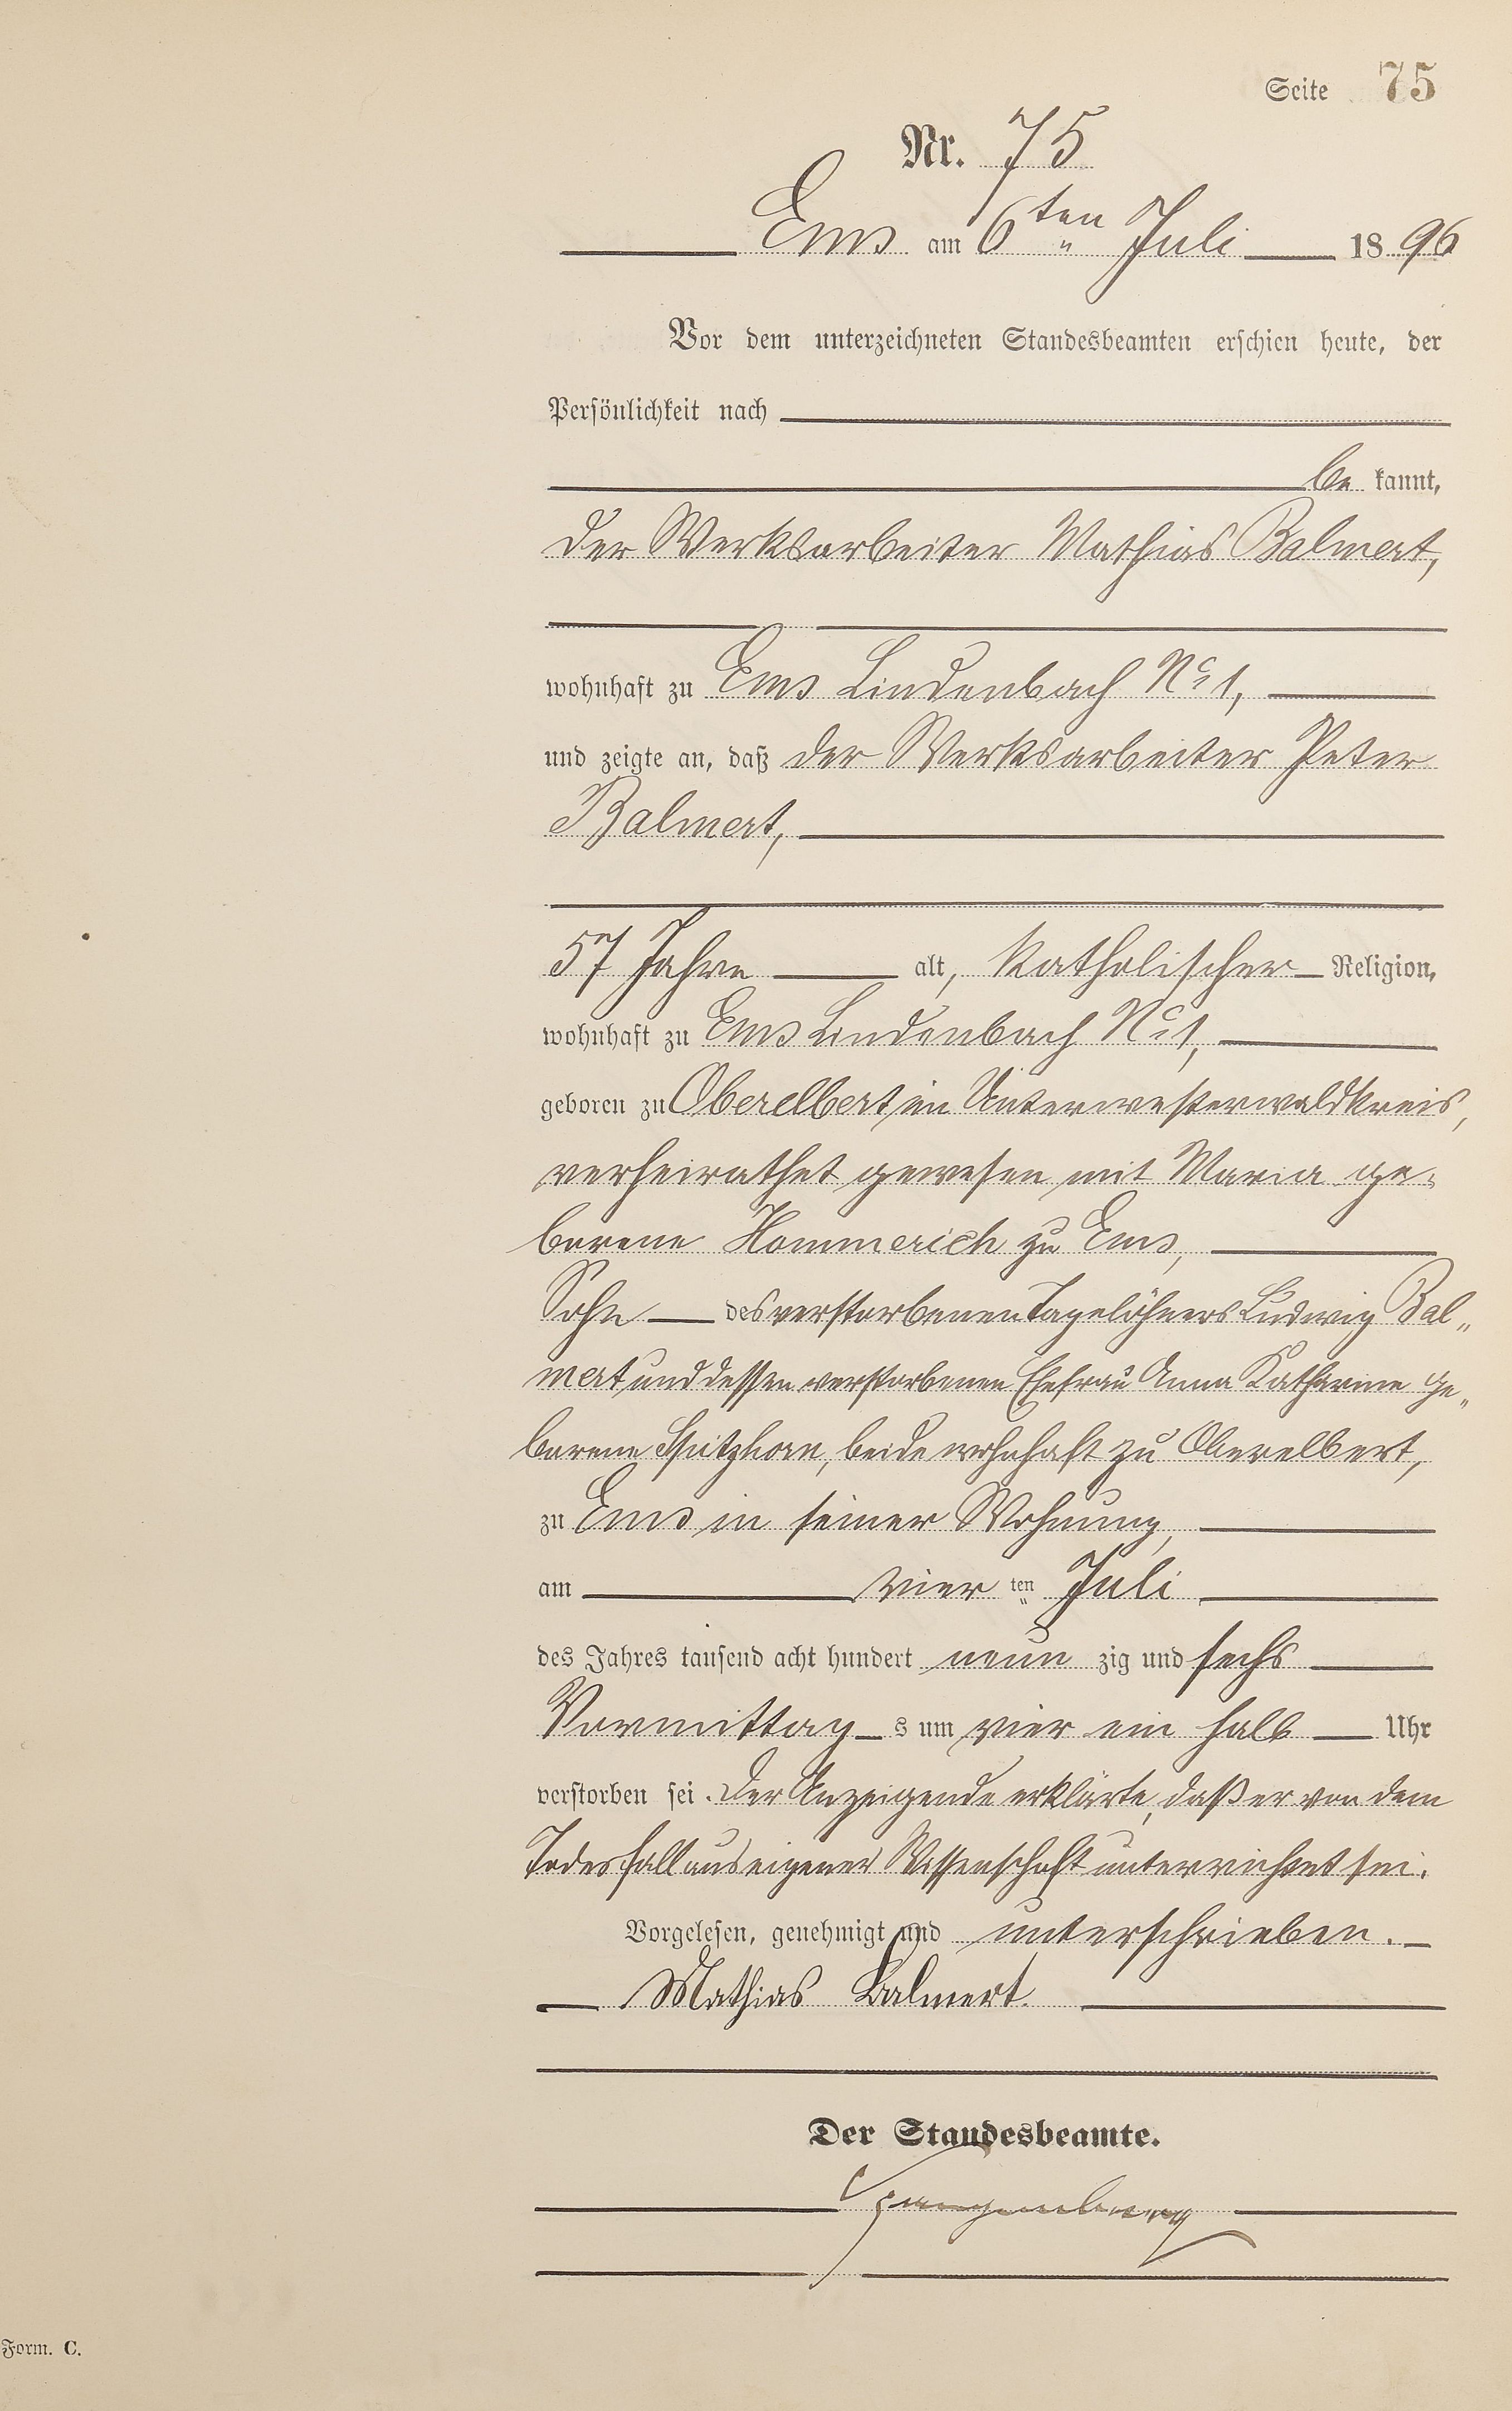 Seite 75
Nr. 75
Ems am 6ten Juli 1896
Vor dem unterzeichneten Standesbeamten erschien heute, der
Persönlichkeit nach
be kannt,
der Werksarbeiter Mathias Balmert,
wohnhaft zu Ems Lindenbach No 1,
und zeigte an, daß der Werksarbeiter Peter
Balmert,
57 Jahre alt, katholischer Religion,
wohnhaft zu Ems Lindenbach No 1,
geboren zu Oberelbert im Unterwesterwaldkreis,
verheirathet gewesen mit Maria ge-
borene Hommerich zu Ems,
Sohn des verstorbenen Tagelöhners Ludwig Bal„
mert und dessen verstorbenen Ehefrau Anna Katharine ge„
borene Spitzhorn, beide wohnhaft zu Oberelbert,
zu Ems in seiner Wohnung,
am vier ten Juli
des Jahres tausend acht hundert neun zig und sechs
Vormittag s um vier ein halb Uhr
verstorben sei. Der Anzeigende erklärte, daß er von dem
Todesfall aus eigener Wissenschaft unterrichtet sei.
Vorgelesen, genehmigt und unterschrieben.
Mathias Balmert.
Der Standesbeamte.
Form. C.